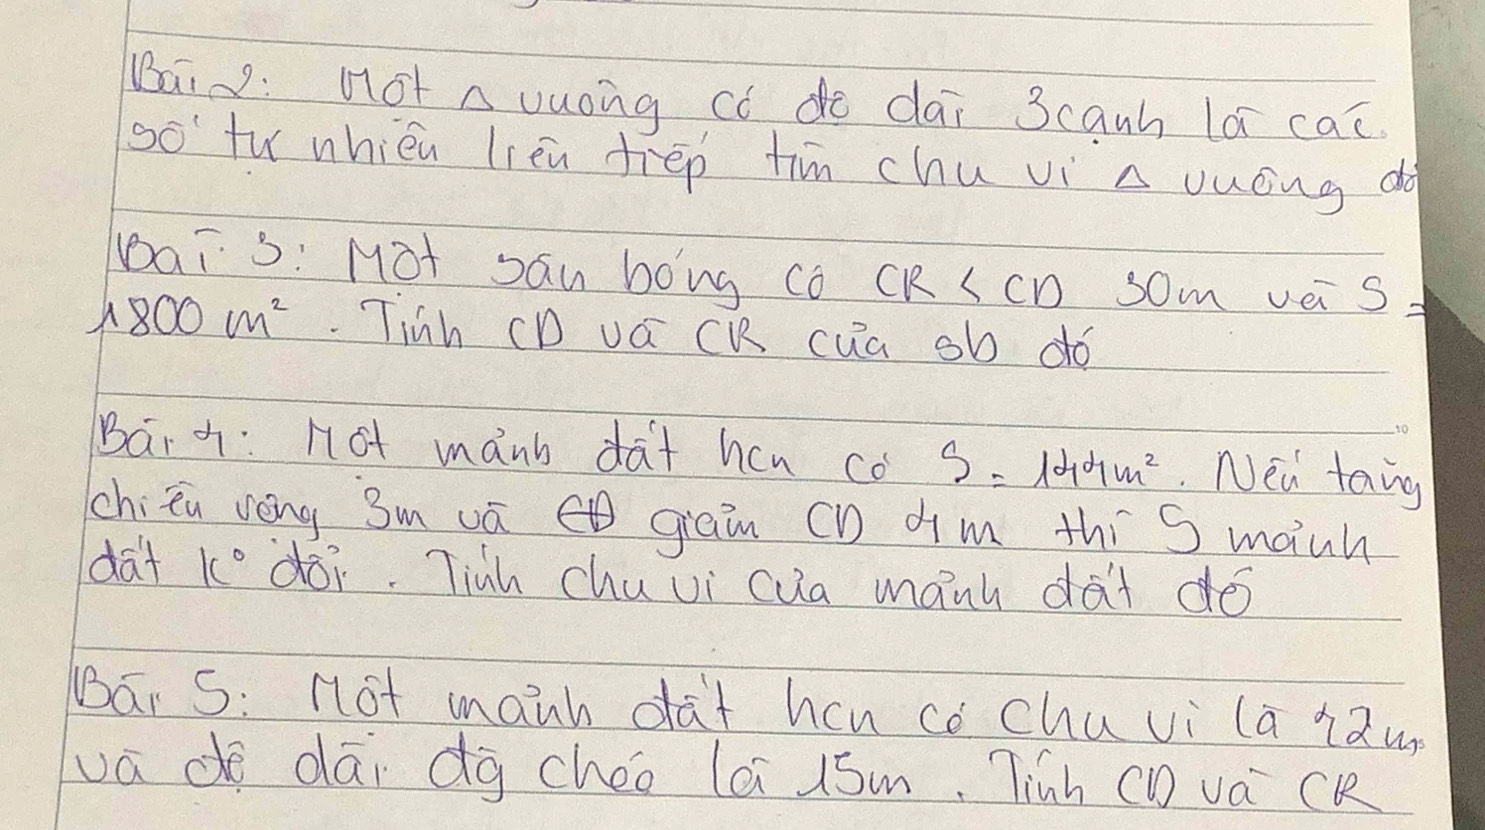 Bài 2: Một △ vuông có độ dài 3 cạnh là các
số tự nhiên liên tiếp tìm chu vi △ vuông đó
Bài 3: Một sân bóng có CR < CD 30m và S =
1800 m². Tính CD và CR của sb đó
Bài 4: Một mảnh đất hcn có S = 144m². Nếu tăng
chiều rộng 3m và giảm CD 4m thì S mảnh
đất k° đổi. Tính chu vi của mảnh đất đó
Bài 5: Một mảnh đất hcn có chu vi là 42m
và độ dài đg chéo là 15m. Tính CD và CR